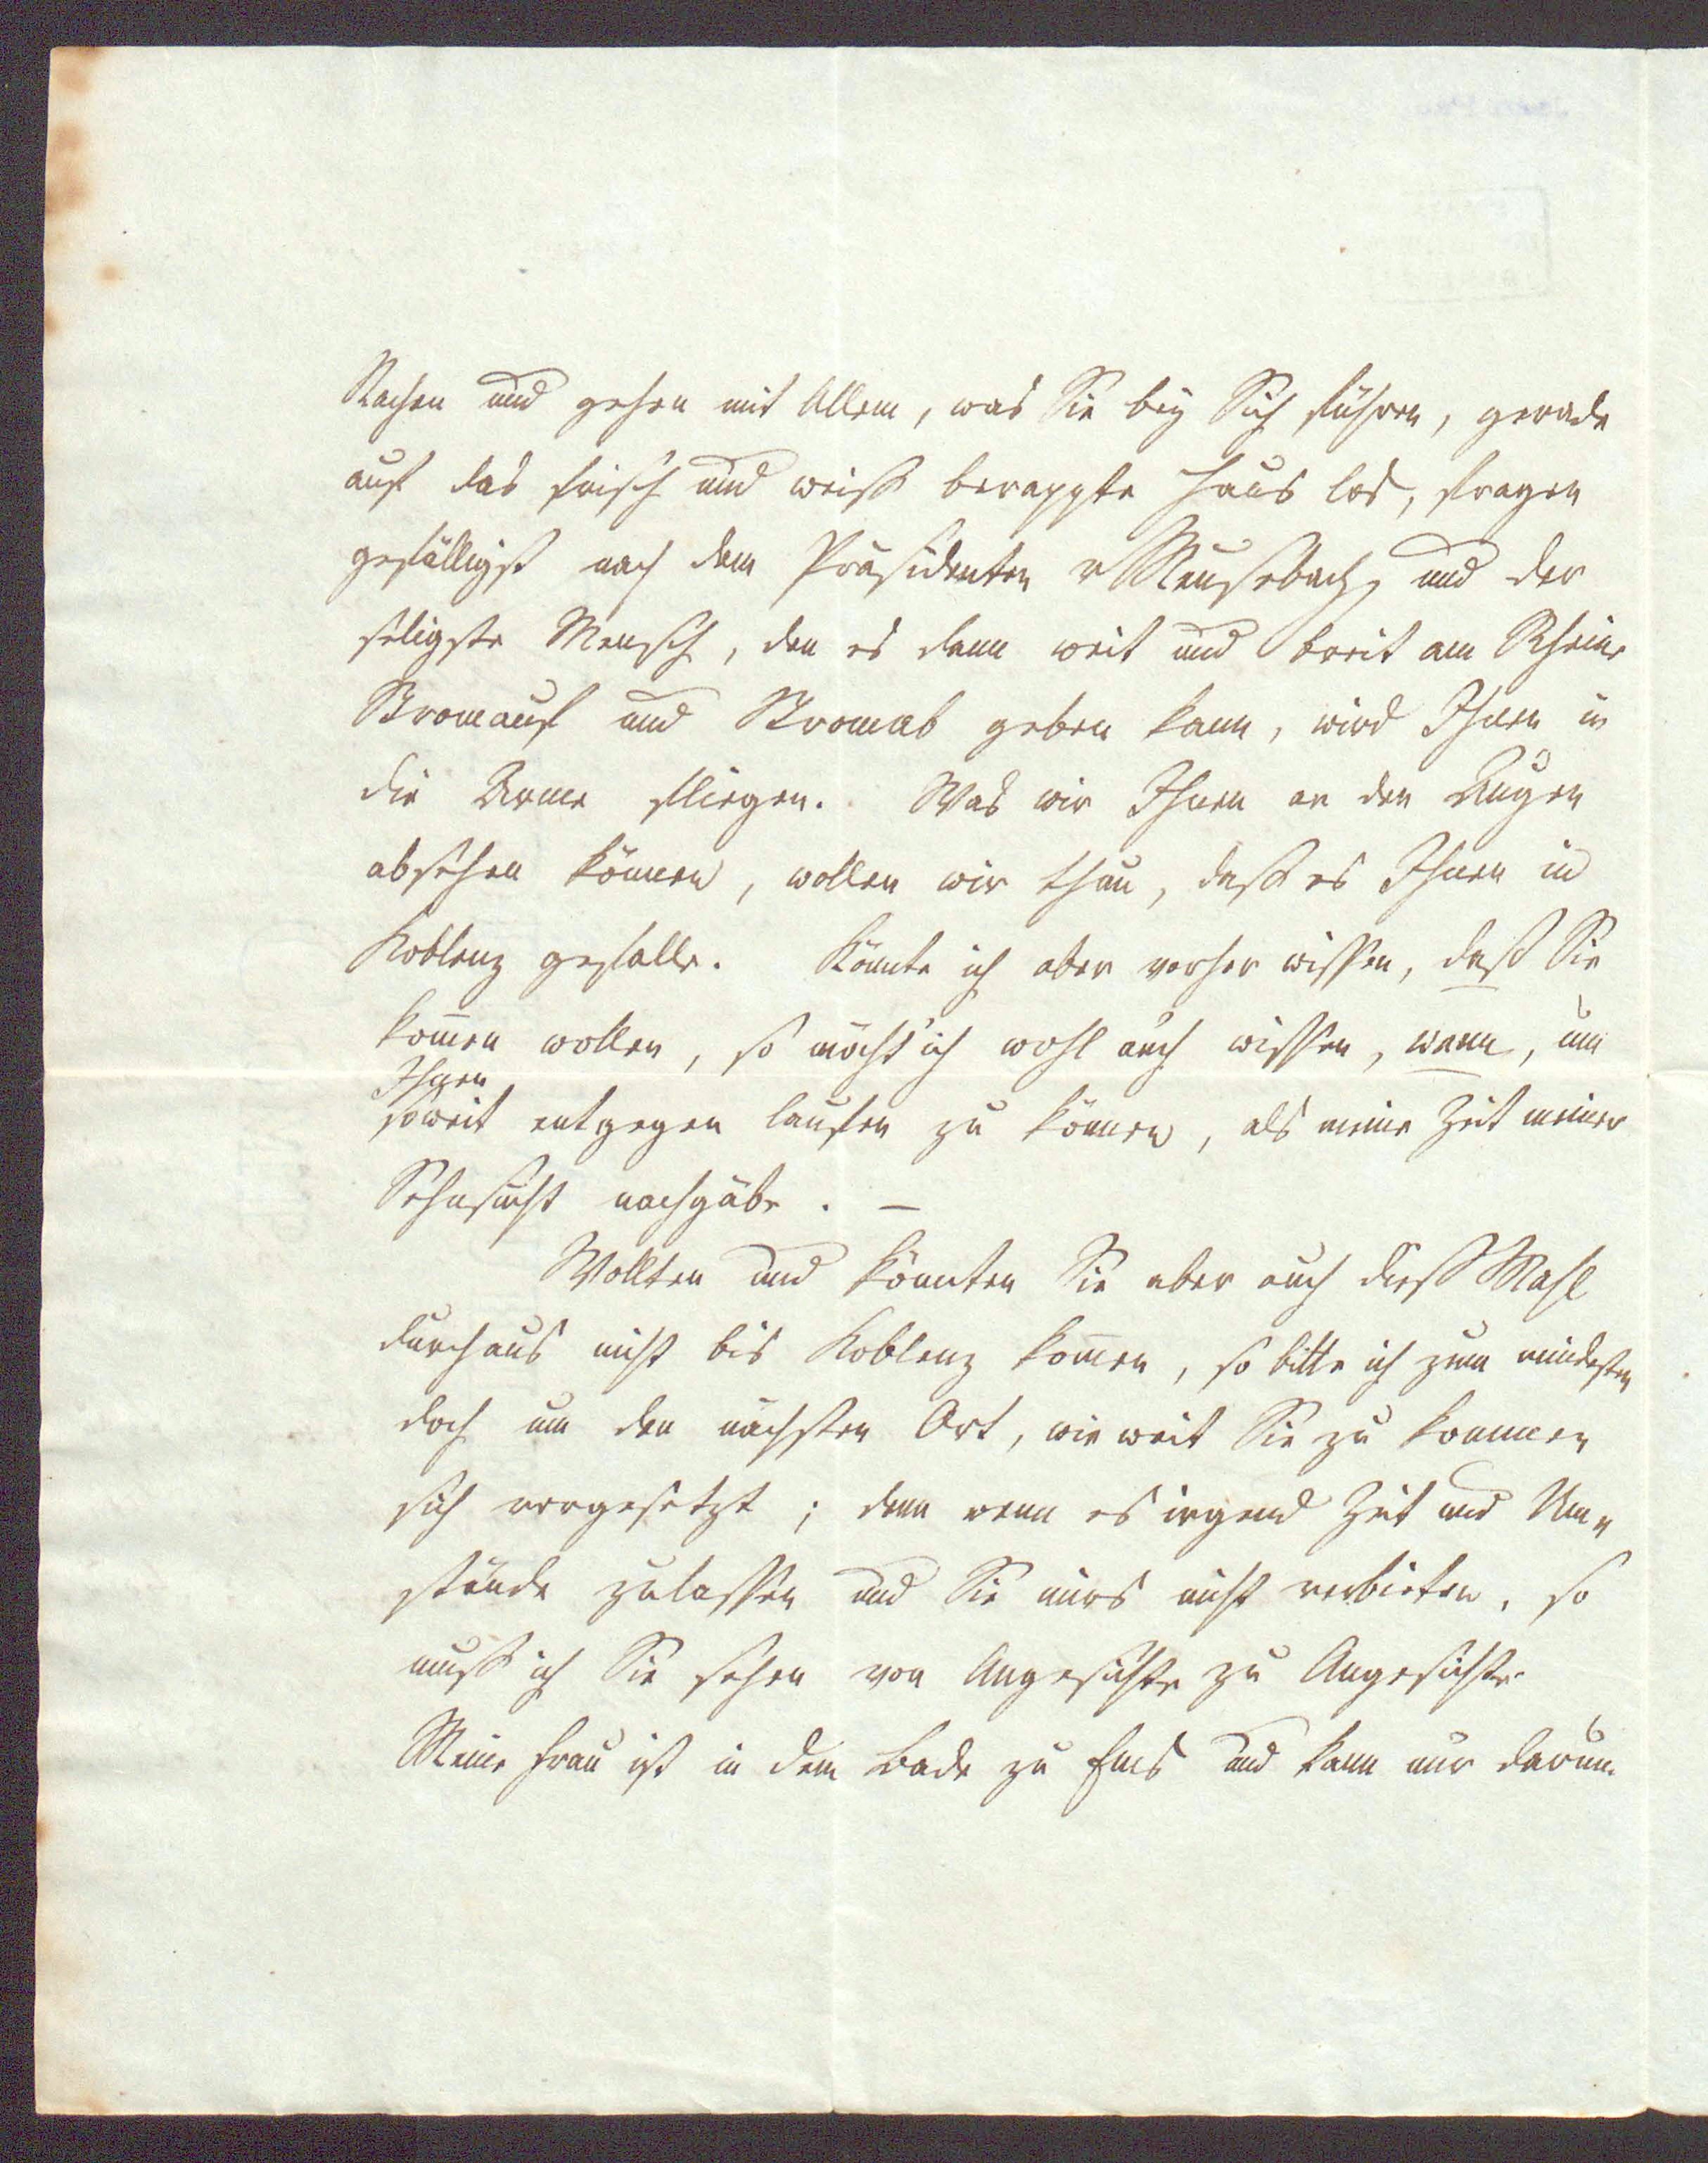 Nachen und gehen mit Allem, was Sie bey Sich führen, gerade
auf das frisch und weiß berappte Haus los, fragen
gefälligst nach dem Präsidenten v Meusebach, und der
seligste Mensch, den es dann weit und breit am Rheine
Stromauf und Stromab geben kann, wird Ihnen in
die Arme fliegen. Was wir Ihnen an den Augen
absehen können, wollen wir thun, daß es Ihnen in
Koblenz gefalle. Könnte ich aber vorher wissen, daß Sie
kom̄en wollen, so möcht' ich wohl auch wissen, wann, um
Ihnen
soweit entgegen laufen zu können, als meine Zeit meiner
Sehnsucht nachgäbe. —
Wollten und könnten Sie aber auch dieß Mahl
durchaus nicht bis Koblenz kom̄en, so bitte ich zum mindesten
doch um den nächsten Ort, wie weit Sie zu kommen
sich vorgesetzt; denn wenn es irgend Zeit und Um-
stände zulassen und Sie mirs nicht verbieten, so
muß ich Sie sehen von Angesichte zu Angesichte.
Meine Frau ist in dem Bade zu Ems und kann nur darum